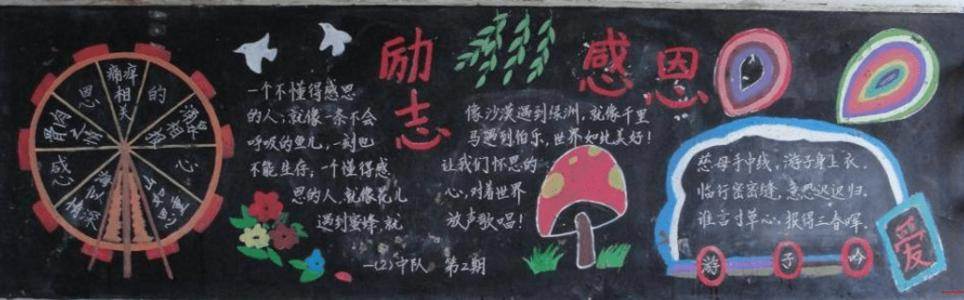 痛痒相关
的
心
感
骨肉之情
励志
感恩
一个不懂得感恩
的人,就像一条不会
呼吸的鱼儿,一刻也
不能生存;一个懂得感
恩的人,就像花儿
遇到蜜蜂,就
像沙漠遇到绿洲,就像千里
马遇到伯乐,世界如此美好!
让我们怀恩的
心,对着世界
放声歌唱!
一(2)中队 第2期
慈母手中线,游子身上衣。
临行密密缝,意恐迟迟归。
谁言寸草心,报得三春晖。
游子吟
爱